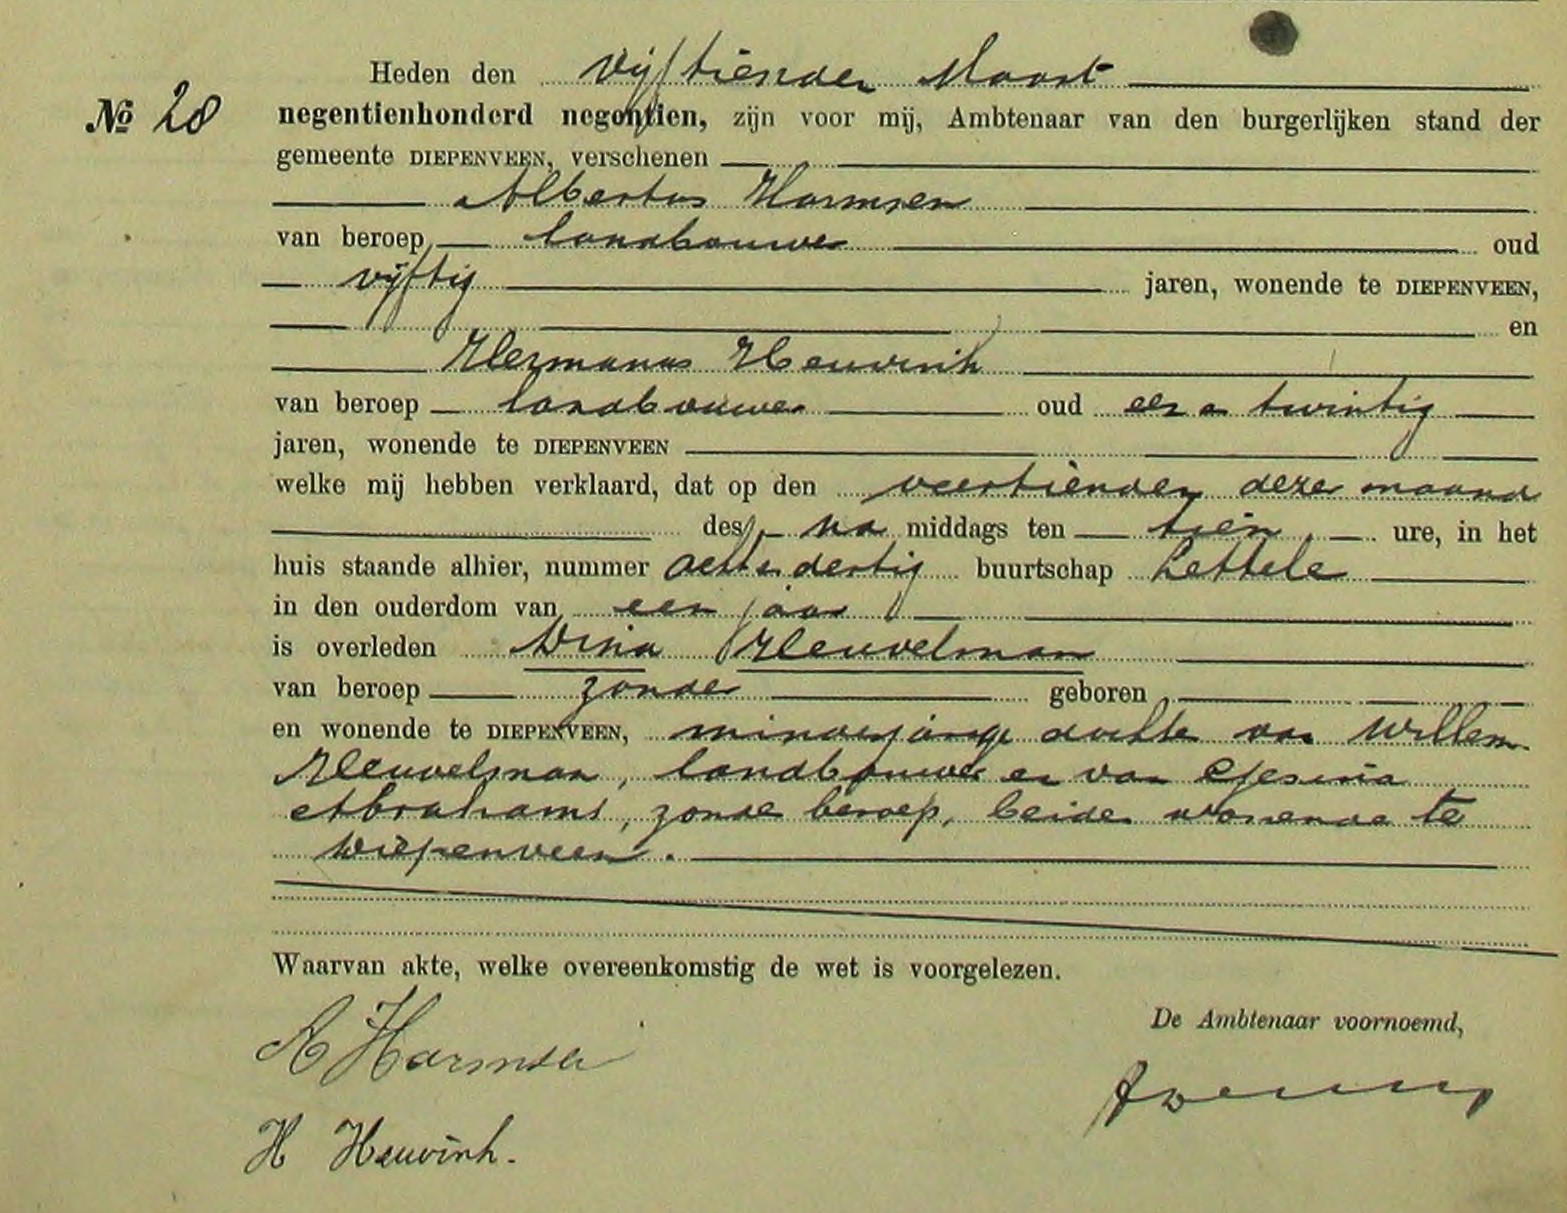 Heden den vijftienden Maart
№ 28 negentienhonderd negentien, zijn voor mij, Ambtenaar van den burgerlijken stand der
gemeente DIEPENVEEN, verschenen
Albertus Harmsen
van beroep landbouwer oud
vijftig jaren, wonende te DIEPENVEEN,
en
Hermanus Heuvink
van beroep landbouwer oud een a twintig
jaren, wonende te DIEPENVEEN
welke mij hebben verklaard, dat op den veertienden dezer maand
des na middags ten tien ure, in het
huis staande alhier, nummer acht en dertig buurtschap Lettele
in den ouderdom van een jaar
is overleden Dina Heuvelman
van beroep zonder geboren
en wonende te DIEPENVEEN, minderjarige dochter van Willem
Heuvelman, landbouwer en van Gesina
Abrahams, zonder beroep, beiden wonende te
Diepenveen.
Waarvan akte, welke overeenkomstig de wet is voorgelezen.
De Ambtenaar voornoemd,
A Harmsen
H Heuvink.